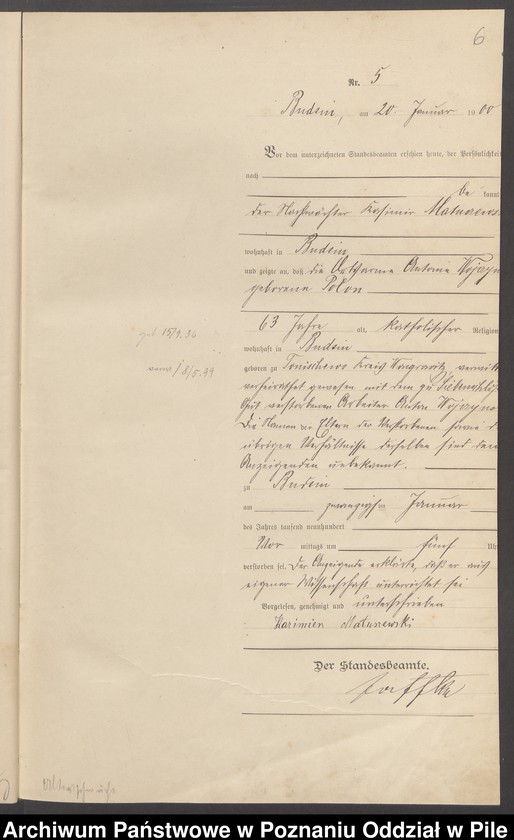 6
Nr. 5
Budsin, am 20. Januar 1900
Vor dem unterzeichneten Standesbeamten erschien heute, der Persönlichkeit
nach
be kannt,
der Nachtwächter Kasimir Matuzews
wohnhaft in Budsin,
und zeigte an, daß die Ortsarme Antonie
geborene Polon
63 Jahre alt, katholischer Religion
wohnhaft in Budsin
geboren zu Kreis Wongrowitz,
verheirathet gewesen mit dem zu
Gut verstorbenen Arbeiter Anton
Die Namen der Eltern der Verstorbenen sowie die
übrigen Verhältnisse derselben sind dem
Anzeigenden unbekannt.
zu Budsin
am zwanzigsten Januar
des Jahres tausend neunhundert
Vor mittags um fünf Uhr
verstorben sei. Der Anzeigende erklärte, daß er aus
eigener Wissenschaft unterrichtet sei
Vorgelesen, genehmigt und unterschrieben
Kazimier Matuzewski
Der Standesbeamte.
Archiwum Państwowe w Poznaniu Oddział w Pile